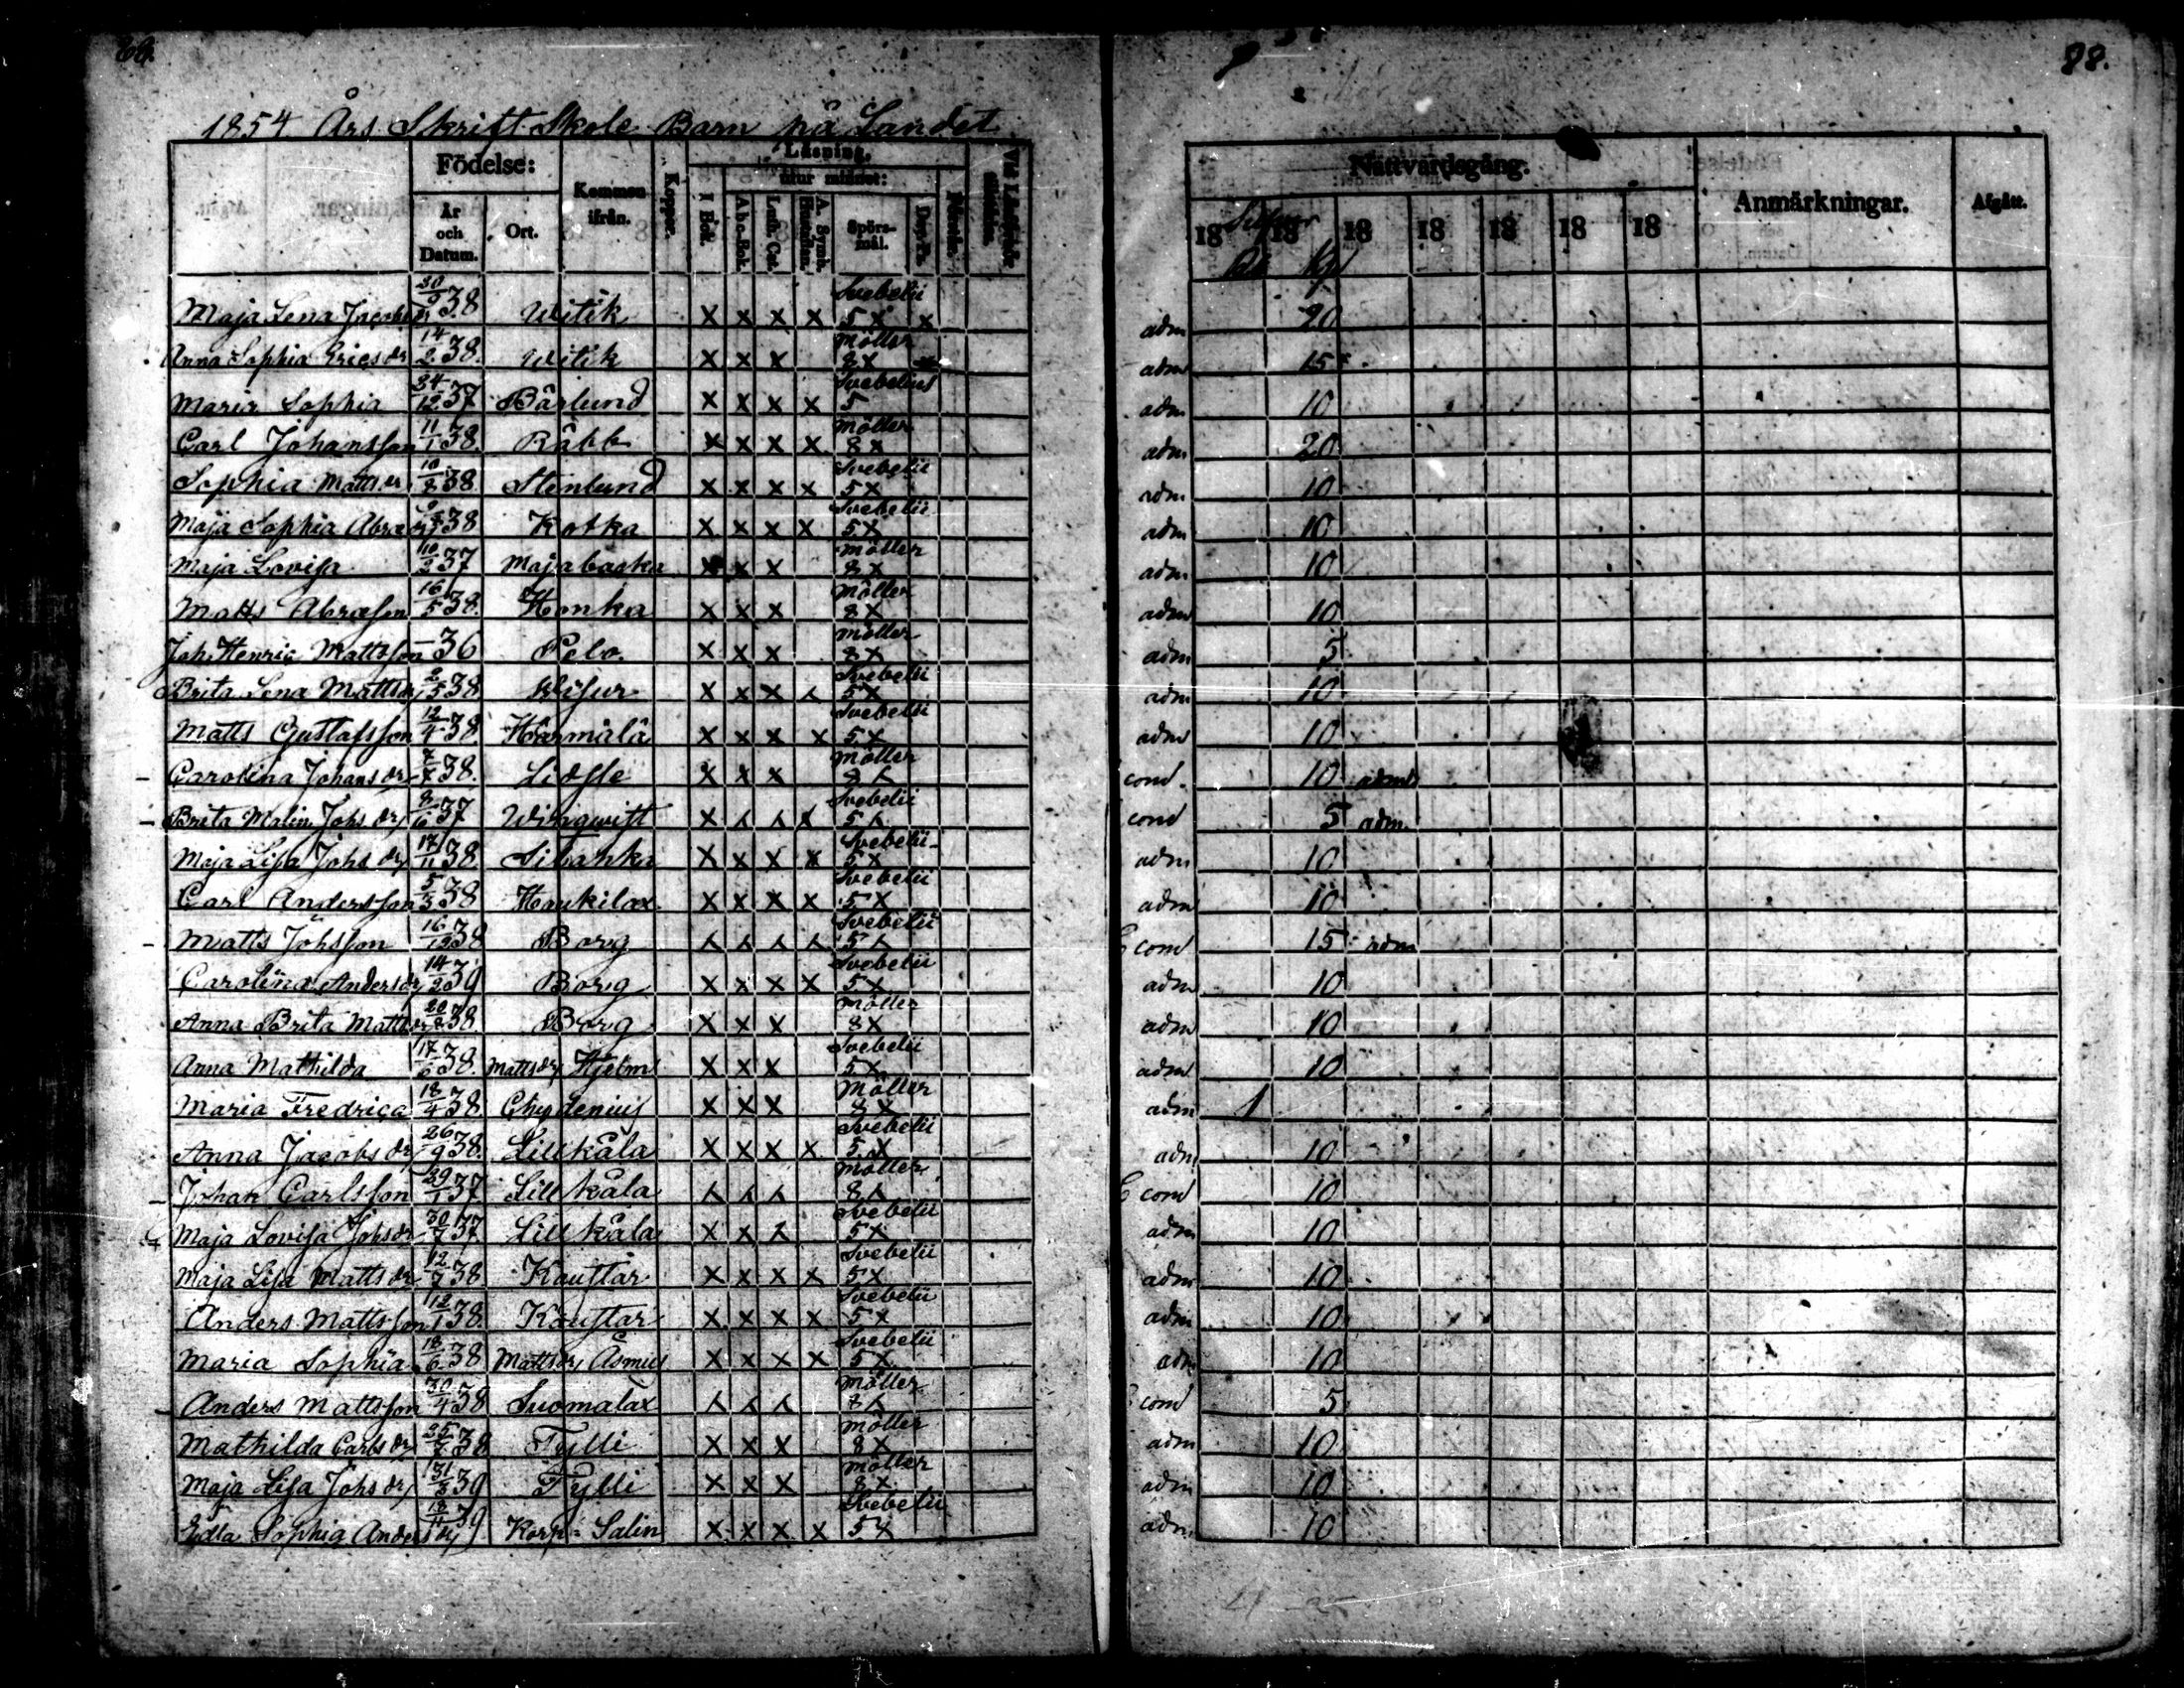 88.
1854 Års Skrift Skole Barn på Landet
Födelse:
År och Datum.
Ort.
Kommen ifrån.
Koppor.
Läsning.
utur minnet:
I Bok.
A b c-Bok.
Luth. Cat.
A. Symb. Hustaflan.
Spörsmål.
Dav. Ps.
Nattvardsgång.
18 18 18 18 18 18 18
Silfver
Anmärkningar.
Afgått.
Maja Lena Jacobs dr 30/9 38 Witik x x x x Svebelii 5 x x adm 20
Anna Sophia Erics dr 14/2 38. Witik x x x Möller 8 x adm 15
Maria Sophia 24/12 37 Bärlund x x x x Svebelius 5 adm 10
Carl Johansson 11/1 38. Räbb x x x x Möller 8 x adm 20
Sophia Matts dr 10/2 38. Stenlund x x x x Svebelii 5 x adm 10
Maja Sophia Abra dr 38 Kotka x x x x Svebelii 5 x adm 10
Maja Lovisa 10/2 37 Majabacka x x x Möller 8 x adm 10
Matts Abrasson 16/5 38. Honka x x x Möller 8 x adm 10
Joh. Henric Mattsson — 36 Pelo. x x x Möller 8 x adm 5
Brita Lena Matts dr 2/5 38 x x x Svebelii 5 x adm 10
Matts Gustafsson 12/4 38 Härmälä x x x x Svebelii 5 x adm 10
Carolina Johans dr 7/7 38. Lidsle x x x Möller 8 cond. 10 adm
Brita Malin Johs dr 8/6 37 Wirgwist x Svebelii 5 cond 5 adm.
Maja Lisa Johs dr 17/11 38 Sibacka x x x x Svebelii 5 x adm 10
Carl Andersson 5/3 38 Haukilax x x x x Svebelii 5 x adm 10
Matts Johsson 16/12 38 Borg Svebelii 5 cond 15 adm
Carolina Anders dr 14/2 39 Borg x x x x Svebelii 5 x adm 10
Anna Brita Matts dr 20/8 38. Borg x x x Möller 8 x adm 10
Anna Mathilda 17/6 38. Matts dr Hjelm x x x Svebelii 5 x adm 10
Maria Fredrica 18/4 38 Chydenius x x x Möller 8 x adm 1
Anna Jacobs dr 26/9 38. Lillkåla x x x x Svebelii 5 x adm 10
Johan Carlsson 29/1 37 Lillkåla Möller 8 cond 10
Maja Lovisa Johs dr 30/7 37. Lillkåla x x Svebelii 5 x adm 10
Maja Lisa Matts dr 12/7 38 Kaustar x x x x Svebelii 5 x adm 10
Anders Mattsson 38. Kaustar x x x x Svebelii 5 x adm 10
Maria Sophia 18/6 38 Matts dr Åsmus x x x x Svebelii 5 x adm 10
Anders Mattsson 30/4 38 Suomalax Möller 8 cond 5
Mathilda Carls dr 25/7 38 Tylli x x x Möller 8 x adm 10
Maja Lisa Johs dr 39 Tylli x x x Möller 8 x adm 10
Edla Sophia Anders dr 39 Korp= Salin x x x x Svebelii 5 x adm 10